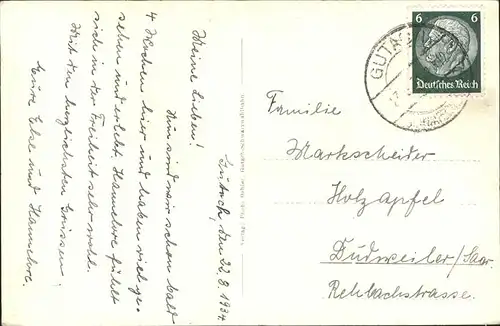 Gutach, den 22.8.1934
Meine Lieben!
Nun sind wir schon bald
4 Wochen hier und haben viel ge-
sehen und erlebt. Hannelore fühlt
sich in der Freiheit sehr wohl.
Mit den herzlichsten Grüssen
Eure Else und Hannelore.
6 6
Deutsches Reich
GUTACH
Familie
Markscheider
Holzapfel
Dudweiler/Saar
Rehbachstrasse.